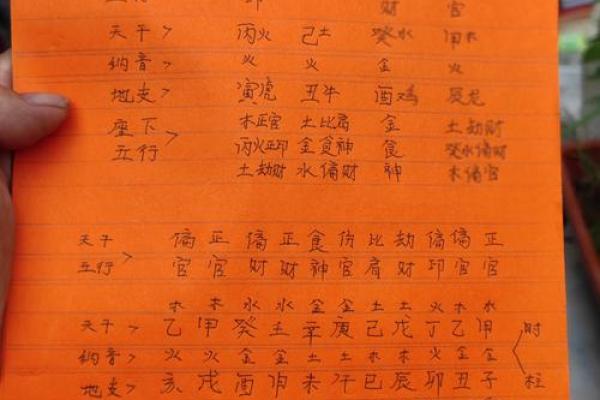 五行 印 财 官
天干> 丙火 己土 癸水 甲木
纳音> 火 火 金 火
地支> 寅虎 丑牛 酉鸡 辰龙
座下 木正官 土比肩 金 土劫财
五行 > 丙火正印 金食神 食 癸水偏财
土劫财 水偏财 神 木偏官
天干 偏 正 偏 正 食 伤 比 劫 偏 偏 正
五行> 官 官 财 财 神 官 肩 财 印 官 官
木 木 水 水 金 金 土 土 火 木 木
天干> 乙 甲 癸 壬 辛 庚 己 戊 丁 乙 甲 时
纳音> 火 火 金 金 土 土 木 木 火 金 金
地支> 亥 戌 酉 申 未 午 巳 辰 卯 丑 子 柱